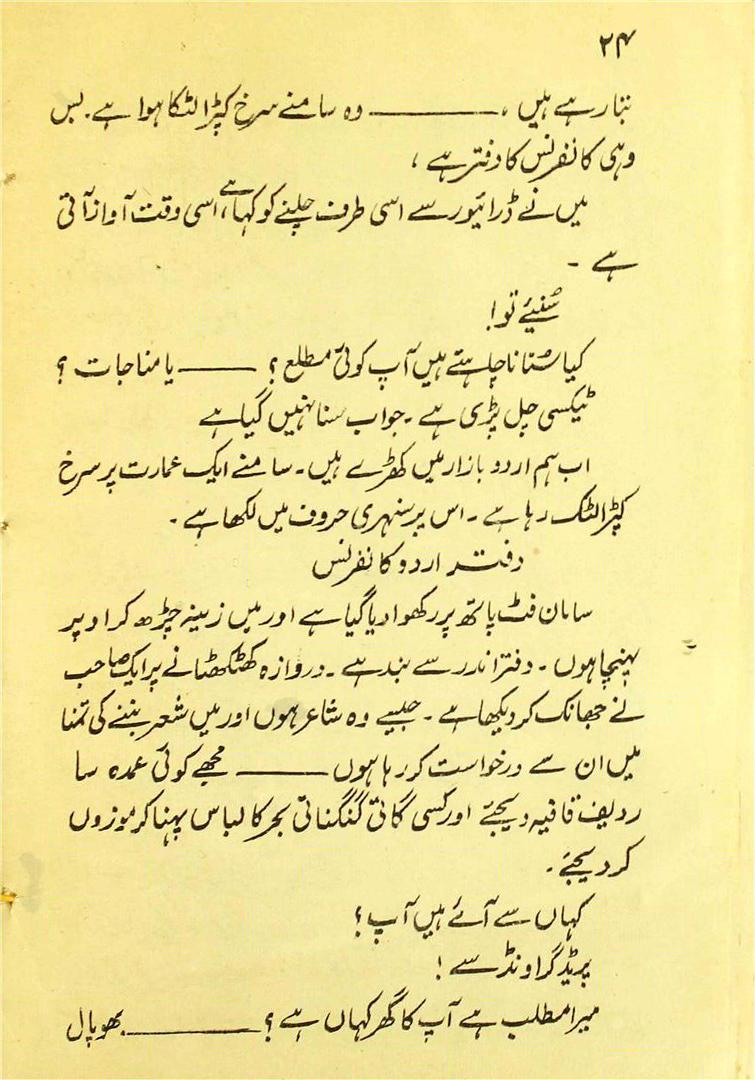 ۲۴
بنا رہے ہیں ، ———— وہ سامنے سرخ کپڑا لٹکا ہوا ہے۔ بس
وہی کانفرنس کا دفتر ہے ،
میں نے ڈرائیور سے اسی طرف چلنے کو کہا ہے، اسی وقت آواز آتی
ہے ۔
سُنیئے تو!
کیا سُنانا چاہتے ہیں آپ کوئی مطلع ؟ ——— یا مناجات ؟
ٹیکسی چل پڑی ہے ۔ جواب سنا نہیں گیا ہے
اب ہم اردو بازار میں کھڑے ہیں۔ سامنے ایک عمارت پر سرخ
کپڑا لٹک رہا ہے ۔ اس پر سنہری حروف میں لکھا ہے ۔
دفتر اردو کانفرنس
سامان فٹ پاتھ پر رکھوا دیا گیا ہے اور میں زینہ چڑھ کر اوپر
پہنچا ہوں ۔ دفتر اندر سے بند ہے ۔ دروازہ کھٹکھٹانے پر ایک صاحب
نے جھانک کر دیکھا ہے ۔ جیسے وہ شاعر ہوں اور میں شعر بننے کی تمنا
میں ان سے درخواست کر رہا ہوں ——— مجھے کوئی عمدہ سا
ردیف قافیہ دیجئے اور کسی گاتی گنگناتی بحر کا لباس پہنا کر موزوں
کر دیجئے ۔
کہاں سے آئے ہیں آپ ؟
پریڈ گراونڈ سے !
میرا مطلب ہے آپ کا گھر کہاں ہے ؟ ———— بھوپال